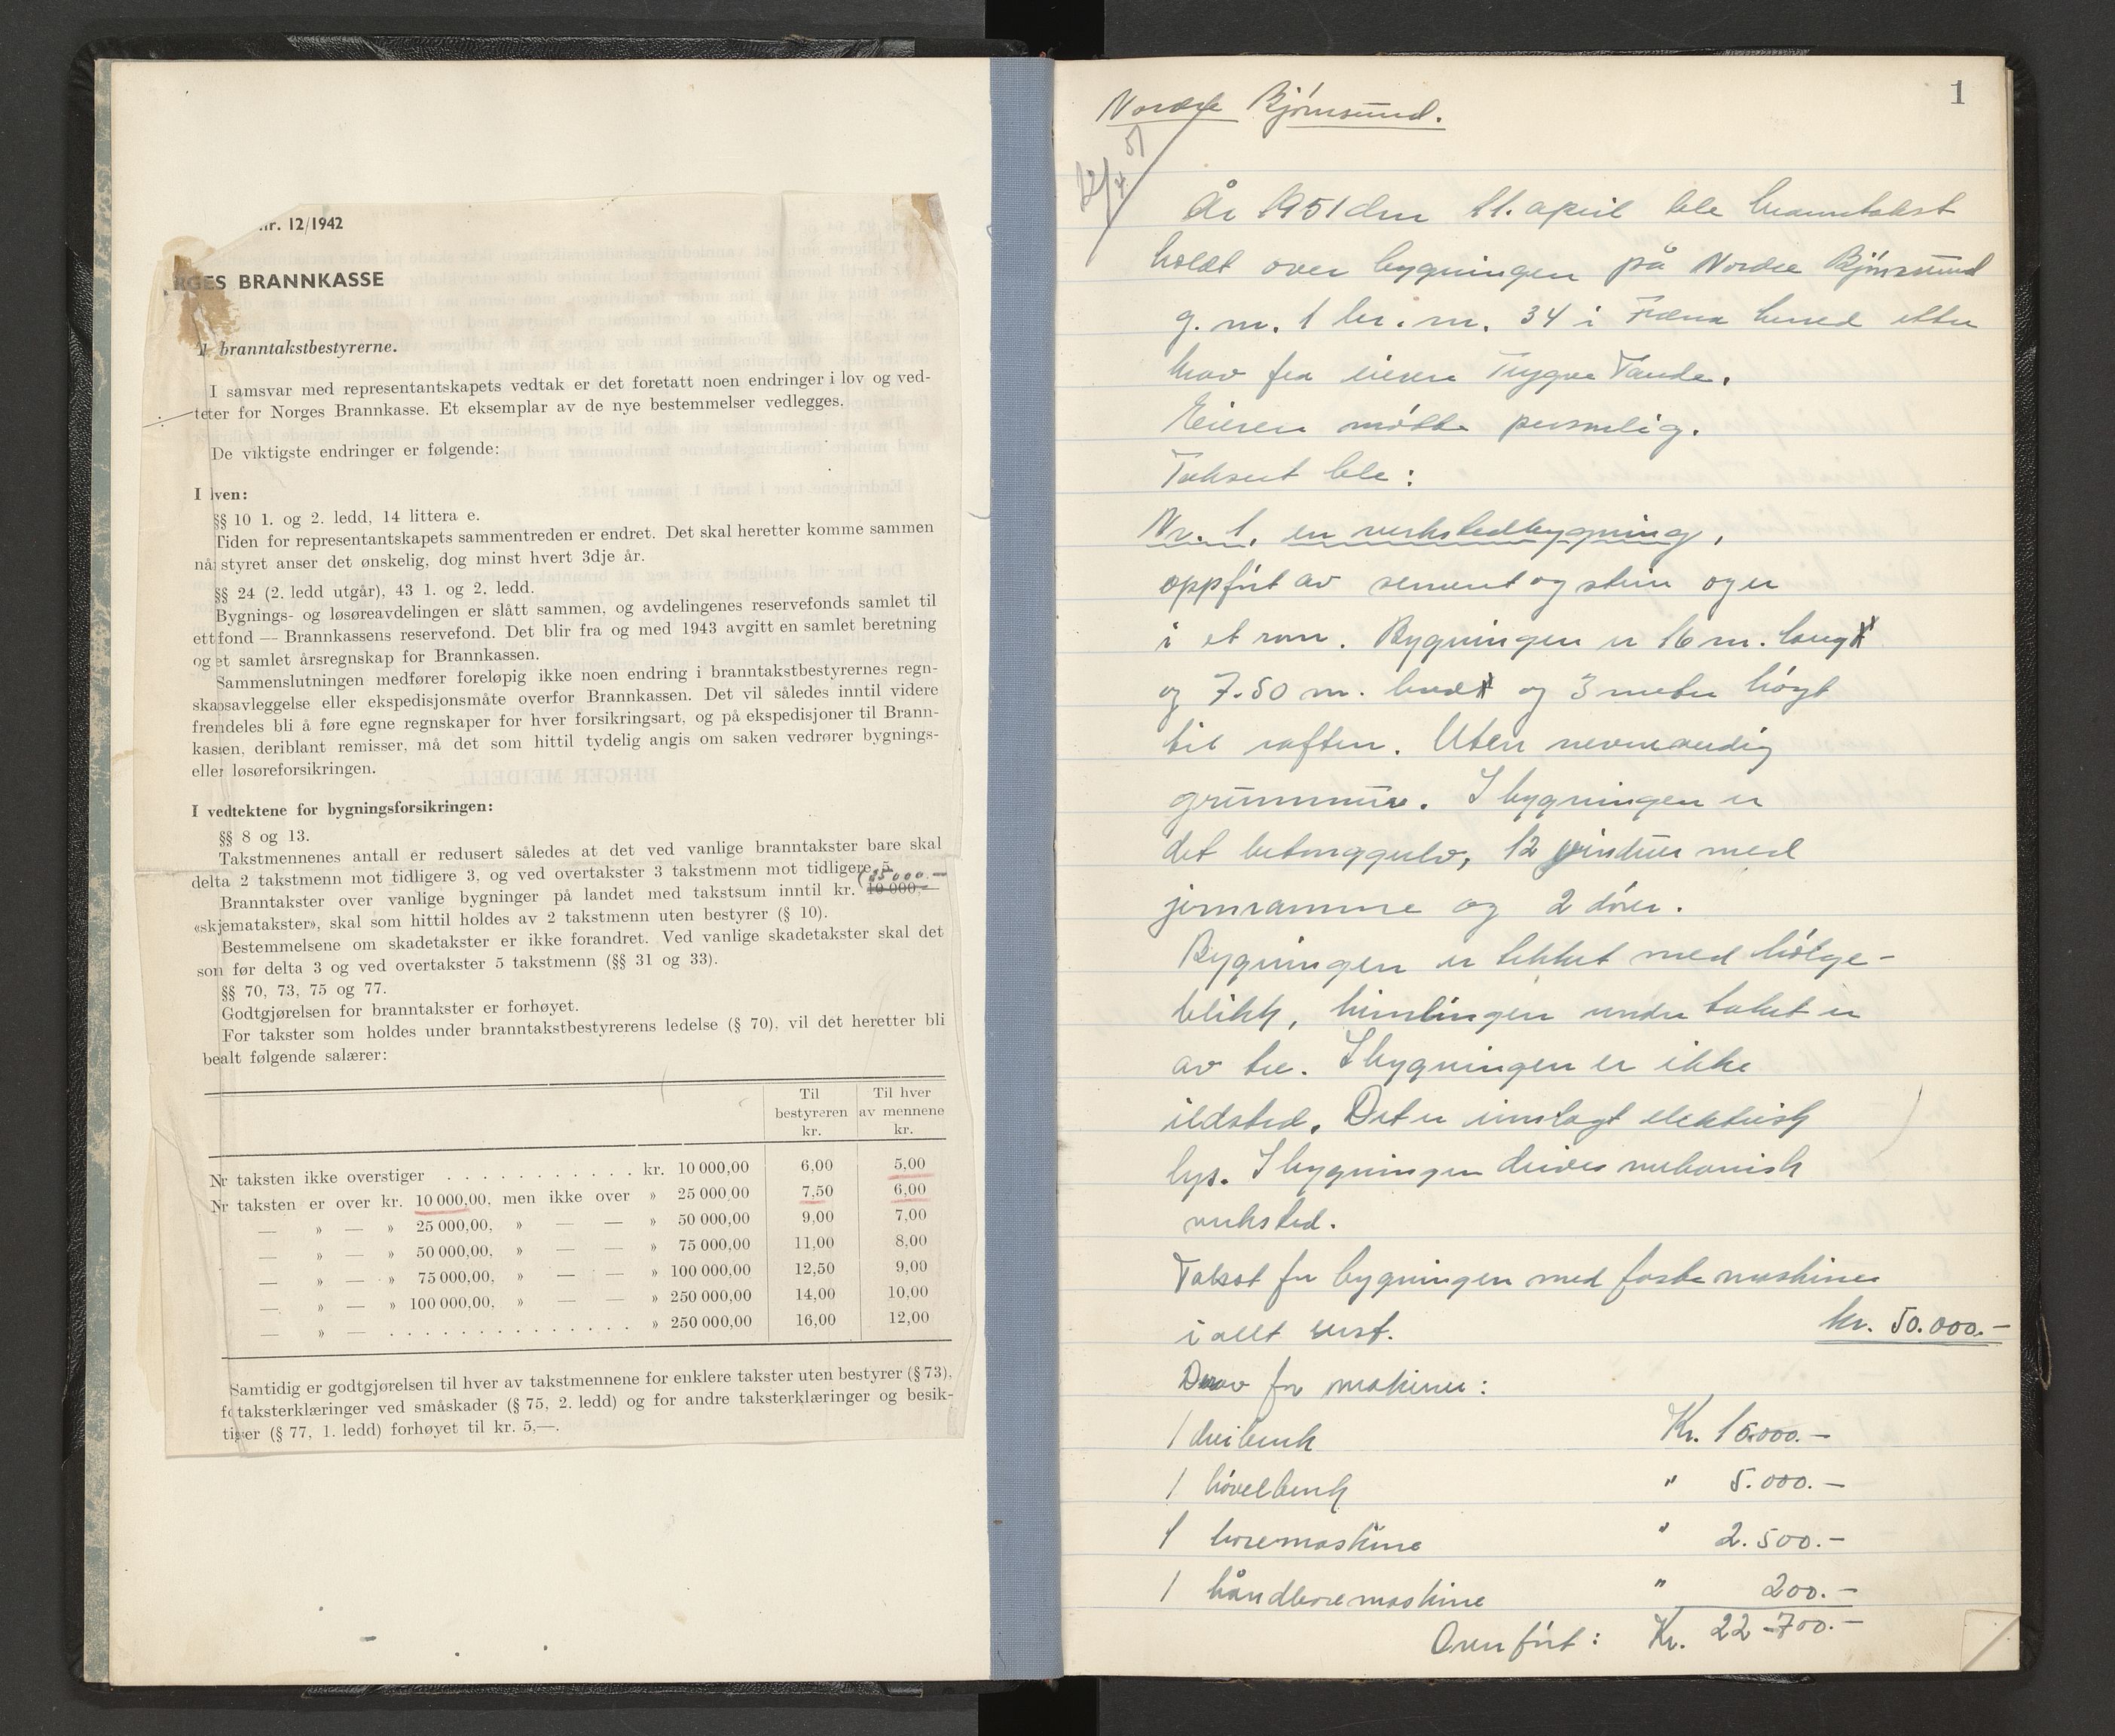 nr. 12/1942
RGES BRANNKASSE
branntakstbestyrerne.
I samsvar med representantskapets vedtak er det foretatt noen endringer i lov og ved-
teter for Norges Brannkasse. Et eksemplar av de nye bestemmelser vedlegges.
De viktigste endringer er følgende:
I lven:
§§ 10 1. og 2. ledd, 14 littera e.
Tiden for representantskapets sammentreden er endret. Det skal heretter komme sammen
når styret anser det ønskelig, dog minst hvert 3dje år.
§§ 24 (2. ledd utgår), 43 1. og 2. ledd.
Bygnings- og løsøreavdelingen er slått sammen, og avdelingenes reservefonds samlet til
ett fond — Brannkassens reservefond. Det blir fra og med 1943 avgitt en samlet beretning
og et samlet årsregnskap for Brannkassen.
Sammenslutningen medfører foreløpig ikke noen endring i branntakstbestyrernes regn-
skapsavleggelse eller ekspedisjonsmåte overfor Brannkassen. Det vil således inntil videre
fremdeles bli å føre egne regnskaper for hver forsikringsart, og på ekspedisjoner til Brann-
kassen, deriblant remisser, må det som hittil tydelig angis om saken vedrører bygnings-
eller løsøreforsikringen.
I vedtektene for bygningsforsikringen:
§§ 8 og 13.
Takstmennenes antall er redusert således at det ved vanlige branntakster bare skal
delta 2 takstmenn mot tidligere 3, og ved overtakster 3 takstmenn mot tidligere 5.
15000.-
Branntakster over vanlige bygninger på landet med takstsum inntil kr. 10 000,-
«skjematakster», skal som hittil holdes av 2 takstmenn uten bestyrer (§ 10).
Bestemmelsene om skadetakster er ikke forandret. Ved vanlige skadetakster skal det
som før delta 3 og ved overtakster 5 takstmenn (§§ 31 og 33).
§§ 70, 73, 75 og 77.
Godtgjørelsen for branntakster er forhøyet.
For takster som holdes under branntakstbestyrerens ledelse (§ 70), vil det heretter bli
bealt følgende salærer:
Til bestyreren kr. Til hver av mennene kr.
Nr taksten ikke overstiger . . . . . . . . . . . kr. 10 000,00 6,00 5,00
Nr taksten er over kr. 10 000,00, men ikke over » 25 000,00 7,50 6,00
— » — » 25 000,00, » — — » 50 000,00 9,00 7,00
— » — » 50 000,00, » — — » 75 000,00 11,00 8,00
— » — » 75 000,00, » — — » 100 000,00 12,50 9,00
— » — » 100 000,00, » — — » 250 000,00 14,00 10,00
— » — . . . . . . . . . . . . . . » 250 000,00 16,00 12,00
Samtidig er godtgjørelsen til hver av takstmennene for enklere takster uten bestyrer (§ 73),
fc taksterklæringer ved småskader (§ 75, 2. ledd) og for andre taksterklæringer og besik-
tiger (§ 77, 1. ledd) forhøyet til kr. 5,—.
1
Nordre Bjørnsund.
12/4 51
År 1951 den 11. april ble branntakst
holdt over bygningen på Nordre Bjørnsund
g. nr. 1 br. nr. 34 i Fræna herred etter
krav fra eieren Trygve Tande.
Eieren møtte personlig.
Taksert ble:
Nr. 1. en verkstedbygning,
oppført av sement og stein og er
i et rom. Bygningen er 16 m. lang
og 7.50 m. bred og 3 meter høgt
til raften. Uten nevneverdig
grunnmur. I bygningen er
det betonggulv, 12 vinduer med
jernramme og 2 dører.
Bygningen er tekket med bølge-
blikk, himlingen under taket er
av tre. I bygningen er ikke
ildsted. Det er innlagt elektrisk
lys. I bygningen drives mekanisk
verksted.
Takst for bygningen med faste maskiner
i allt verst. kr. 50.000.-
Derav for maskiner:
1 dreibenk Kr. 15.000.-
1 høvelbenk " 5.000.-
1 boremaskine " 2.500.-
1 håndboremaskine " 200.-
Overført: Kr. 22.700.-